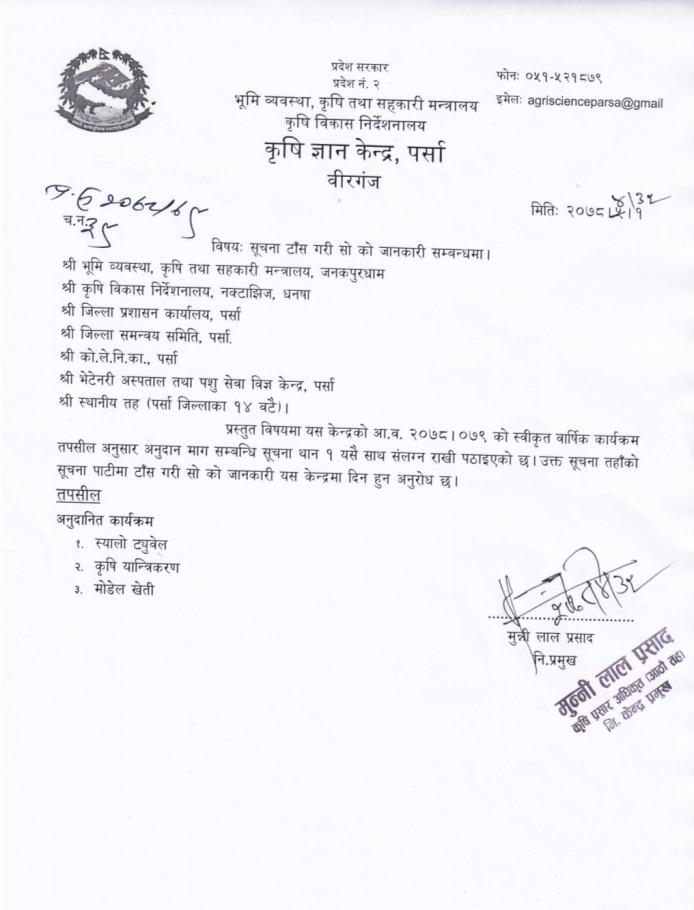 प्रदेश सरकार
प्रदेश नं. २
भूमि व्यवस्था, कृषि तथा सहकारी मन्त्रालय
कृषि विकास निर्देशनालय
कृषि ज्ञान केन्द्र, पर्सा
वीरगंज
फोनः ०५१-५२१८७९
इमेलः agriscienceparsa@gmail
प.सं २०७८/७९
च.न. ३९
मितिः २०७८।५।१
४/३२
विषयः सूचना टाँस गरी सो को जानकारी सम्बन्धमा।
श्री भूमि व्यवस्था, कृषि तथा सहकारी मन्त्रालय, जनकपुरधाम
श्री कृषि विकास निर्देशनालय, नक्टाझिज, धनषा
श्री जिल्ला प्रशासन कार्यालय, पर्सा
श्री जिल्ला समन्वय समिति, पर्सा.
श्री को.ले.नि.का., पर्सा
श्री भेटेनरी अस्पताल तथा पशु सेवा विज्ञ केन्द्र, पर्सा
श्री स्थानीय तह (पर्सा जिल्लाका १४ वटै)।
प्रस्तुत विषयमा यस केन्द्रको आ.व. २०७८।०७९ को स्वीकृत वार्षिक कार्यक्रम
तपसील अनुसार अनुदान माग सम्बन्धि सूचना थान १ यसै साथ संलग्न राखी पठाइएको छ। उक्त सूचना तहाँको
सूचना पाटीमा टाँस गरी सो को जानकारी यस केन्द्रमा दिन हुन अनुरोध छ।
तपसील
अनुदानित कार्यक्रम
१. स्यालो ट्युवेल
२. कृषि यान्त्रिकरण
३. मोडेल खेती
मुन्नी लाल प्रसाद
नि.प्रमुख
मुन्नी लाल प्रसाद
कृषि प्रसार अधिकृत (आठौं तह)
नि. केन्द्र प्रमुख